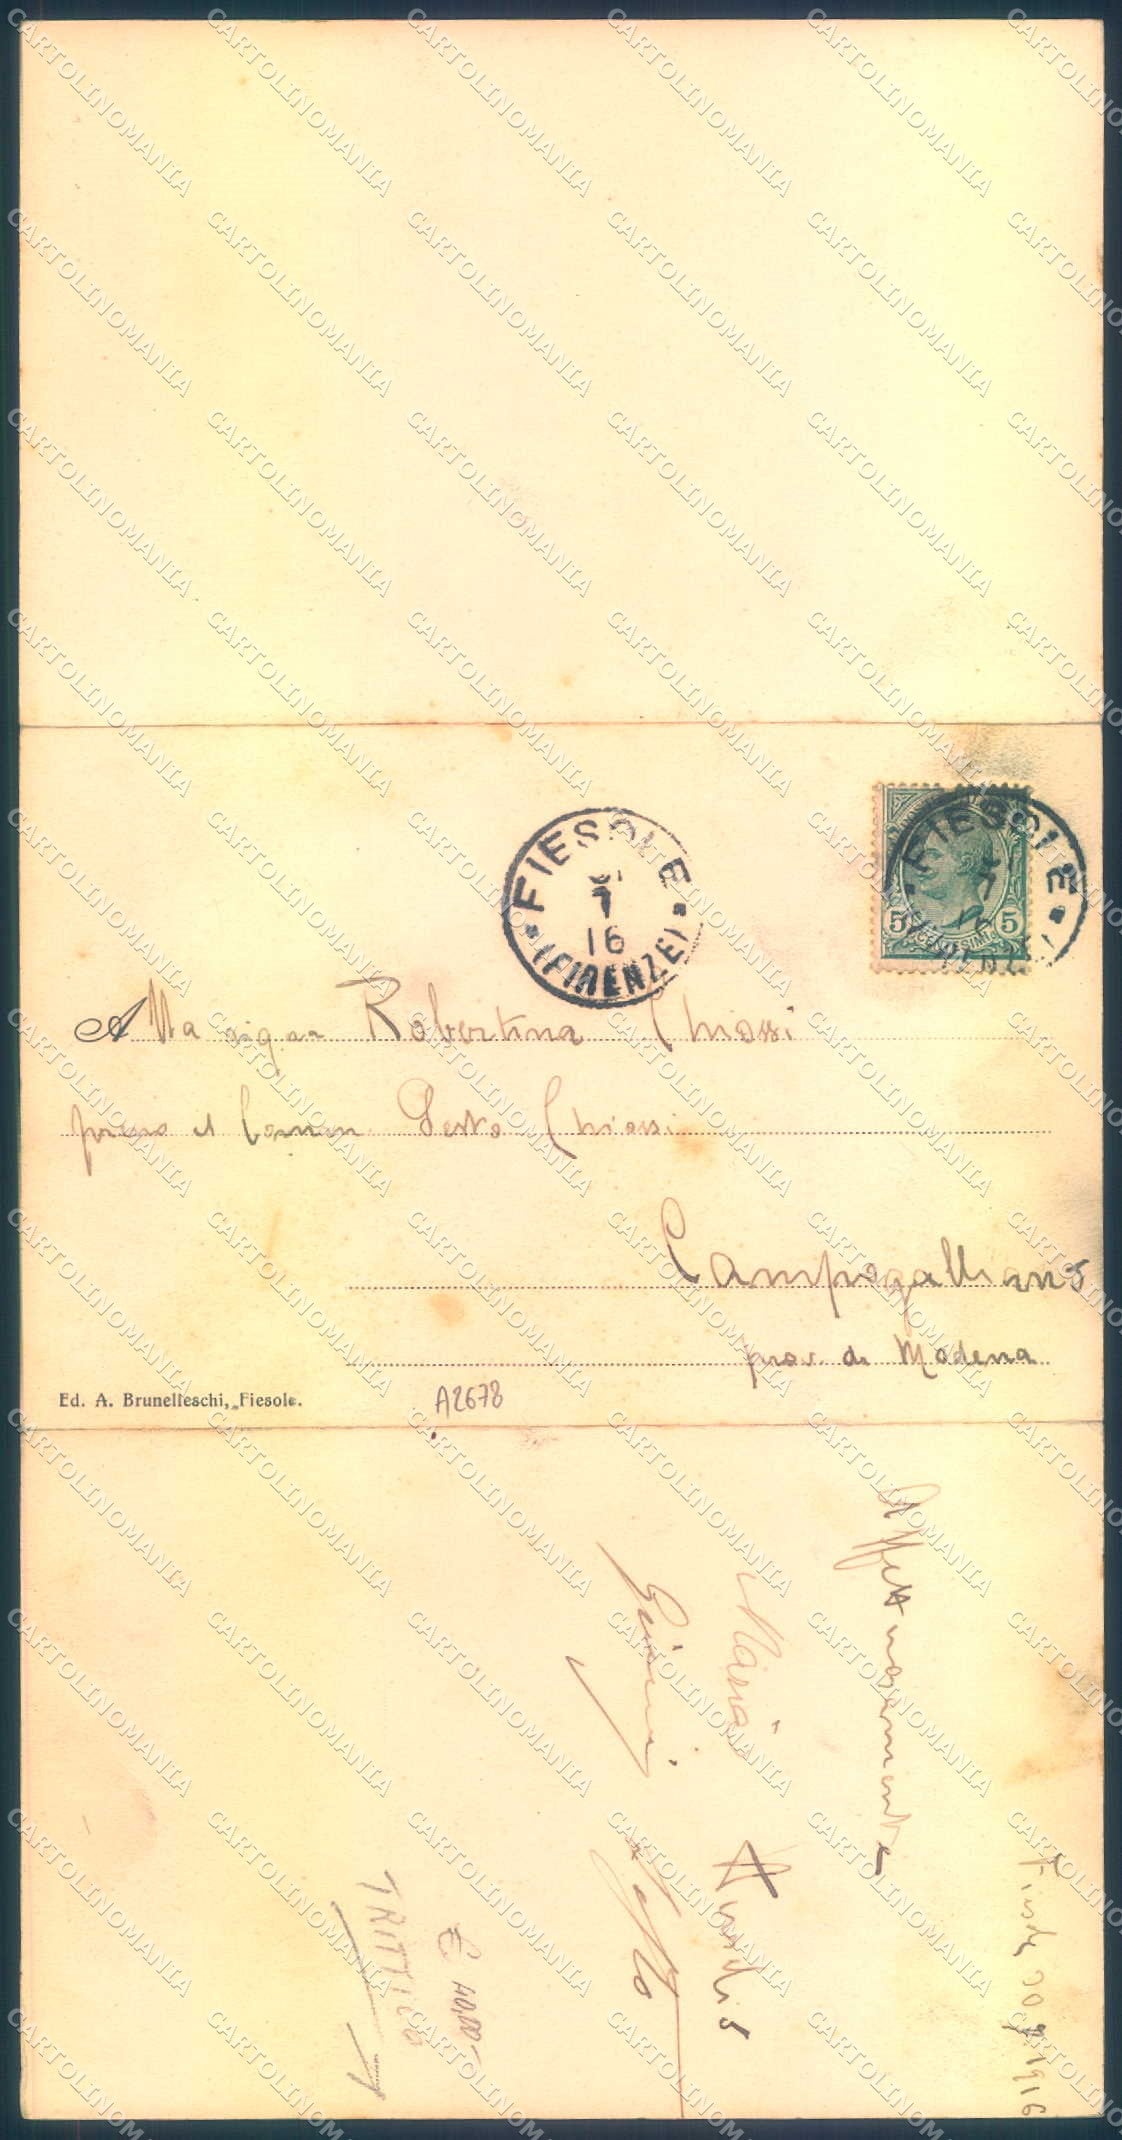 FIESOLE
7
16
(FIRENZE)
FIESOLE
5 CENTESIMI 5
Alla sig.na Robertina Chiossi
presso il Comm. Sesto Chiossi
Campogalliano
prov. di Modena
Ed. A. Brunelleschi, Fiesole.
A2678
1916
Affettuosamente
Maria
TRITTICO
€ 40,00
CARTOLINOMANIA